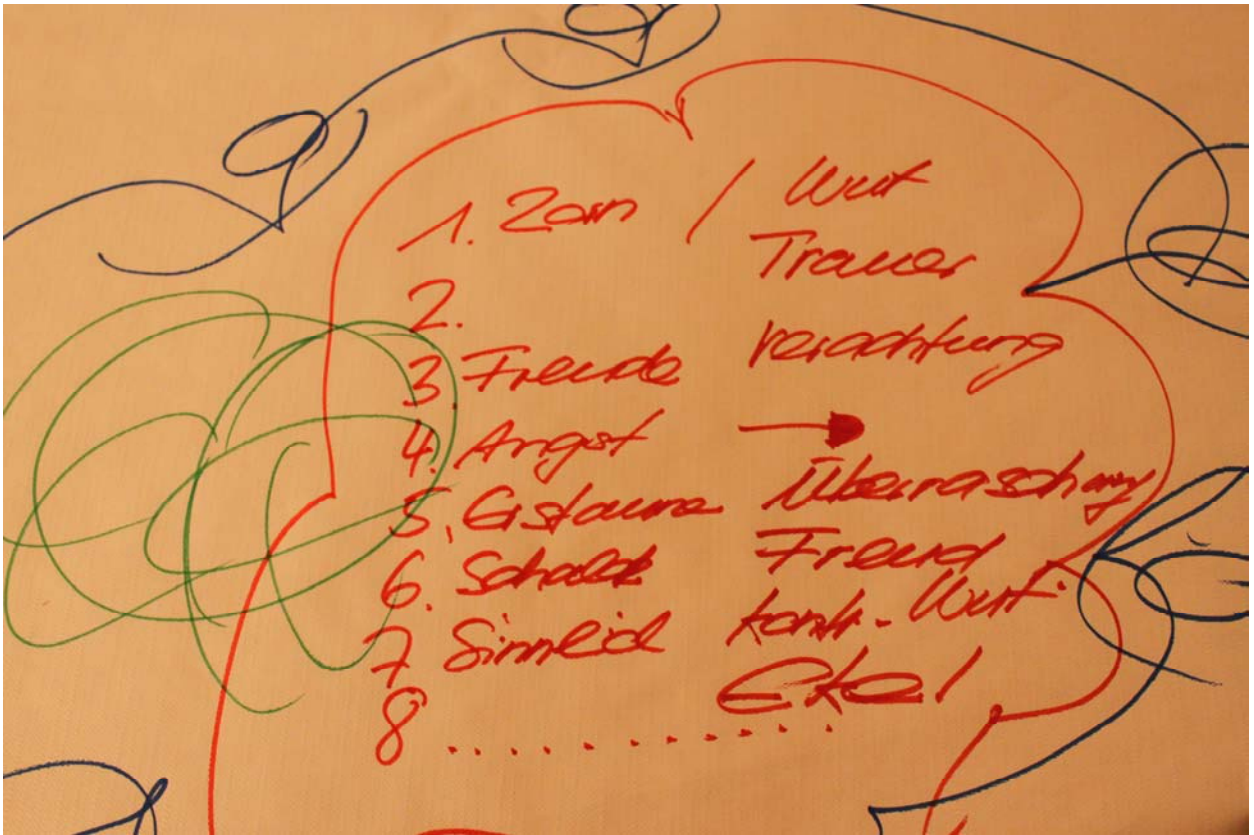 1. Zorn / Wut
2. Trauer
3. Freude Verachtung
4. Angst
5. Erstaune Überraschung
6. Freud
7 Sinnlich kontr. Wut.
8 .......... Ekel